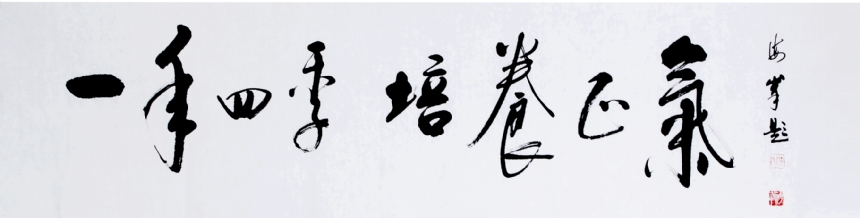 一年四季培養正氣
海峯題